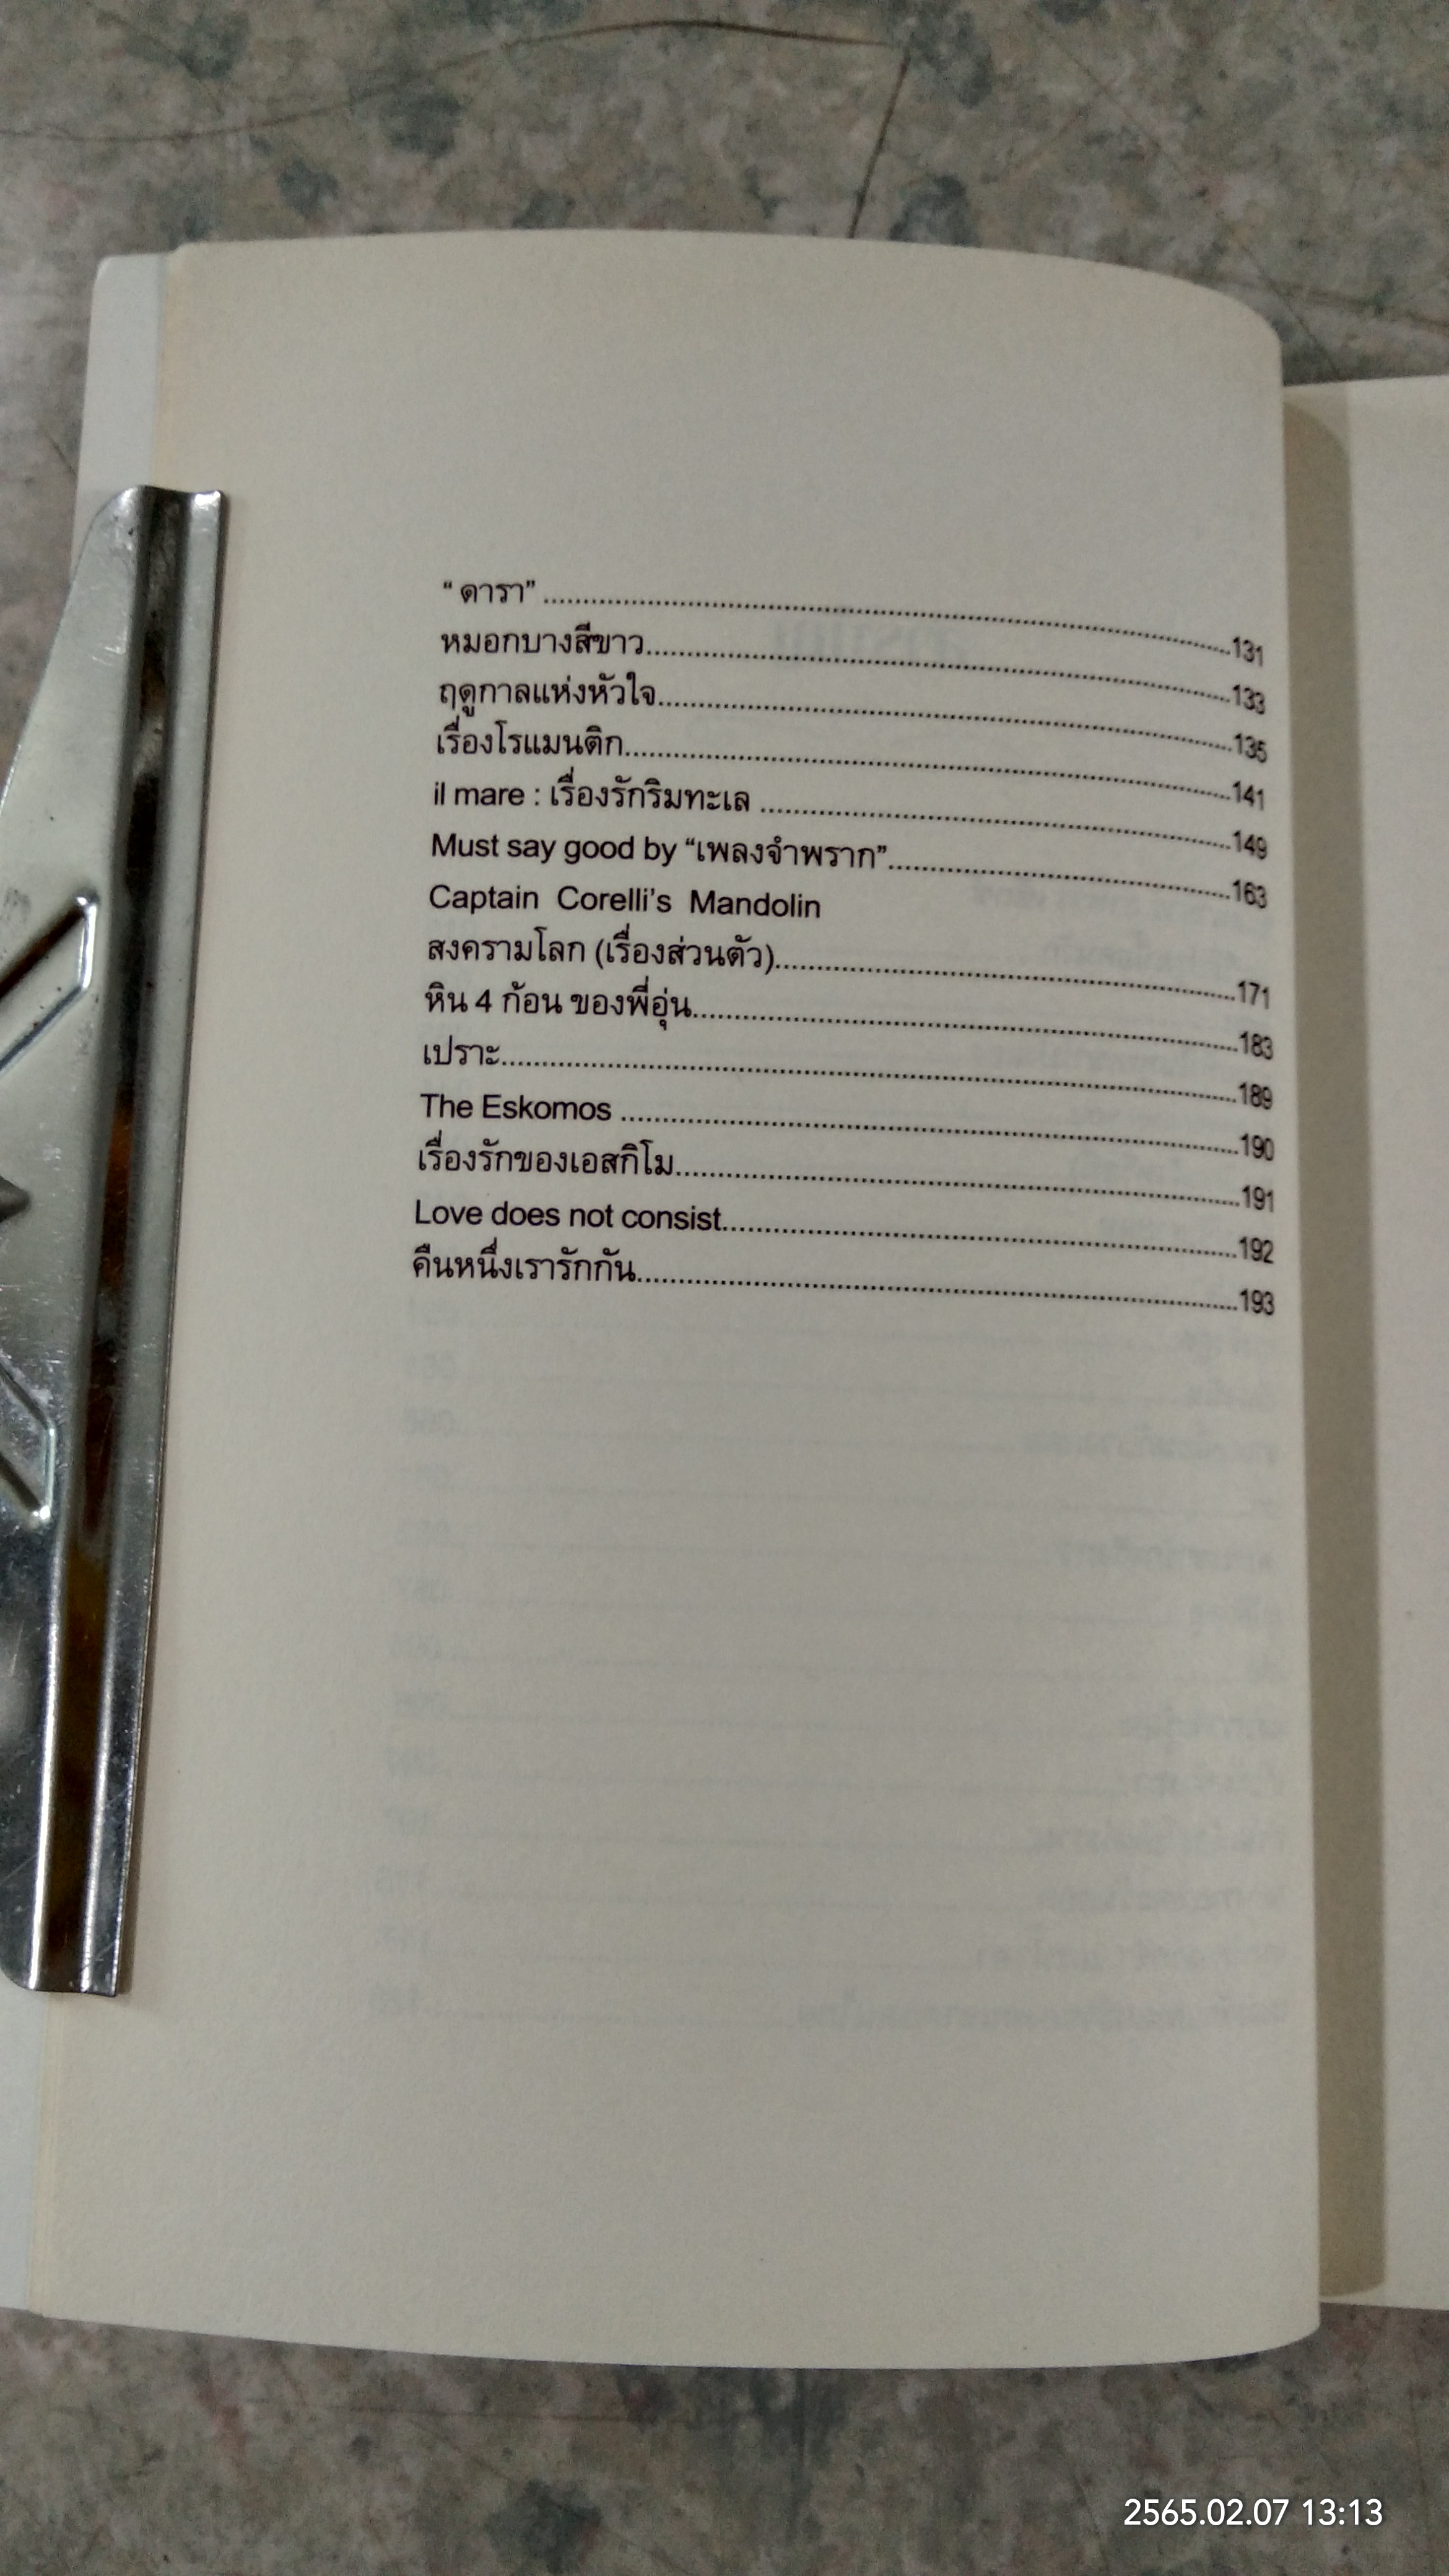 “ ดารา” ..........131
หมอกบางสีขาว..........133
ฤดูกาลแห่งหัวใจ..........135
เรื่องโรแมนติก..........141
il mare : เรื่องรักริมทะเล ..........149
Must say good by “เพลงจำพราก”..........163
Captain Corelli’s Mandolin
สงครามโลก (เรื่องส่วนตัว)..........171
หิน 4 ก้อน ของพี่อุ่น..........183
เปราะ..........189
The Eskomos ..........190
เรื่องรักของเอสกิโม..........191
Love does not consist..........192
คืนหนึ่งเรารักกัน..........193
2565.02.07 13:13